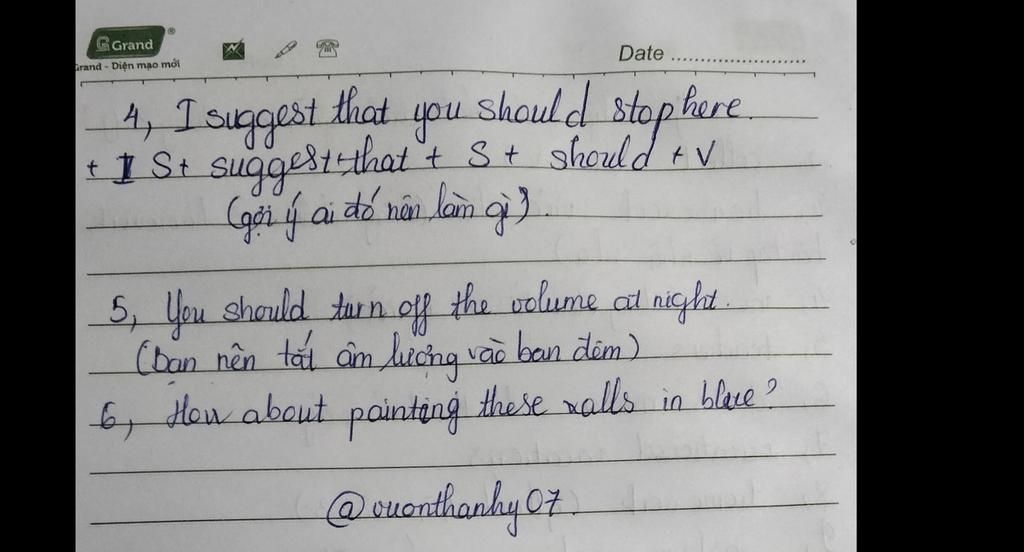 Grand
Grand - Diện mạo mới
Date
4, I suggest that you should stop here.
+ I S+ suggest+that + S + should + V
(gợi ý ai đó nên làm gì).
5, You should turn off the volume at night.
(Bạn nên tắt âm lượng vào ban đêm)
6, How about painting these walls in blue?
@vuonthanhy07.